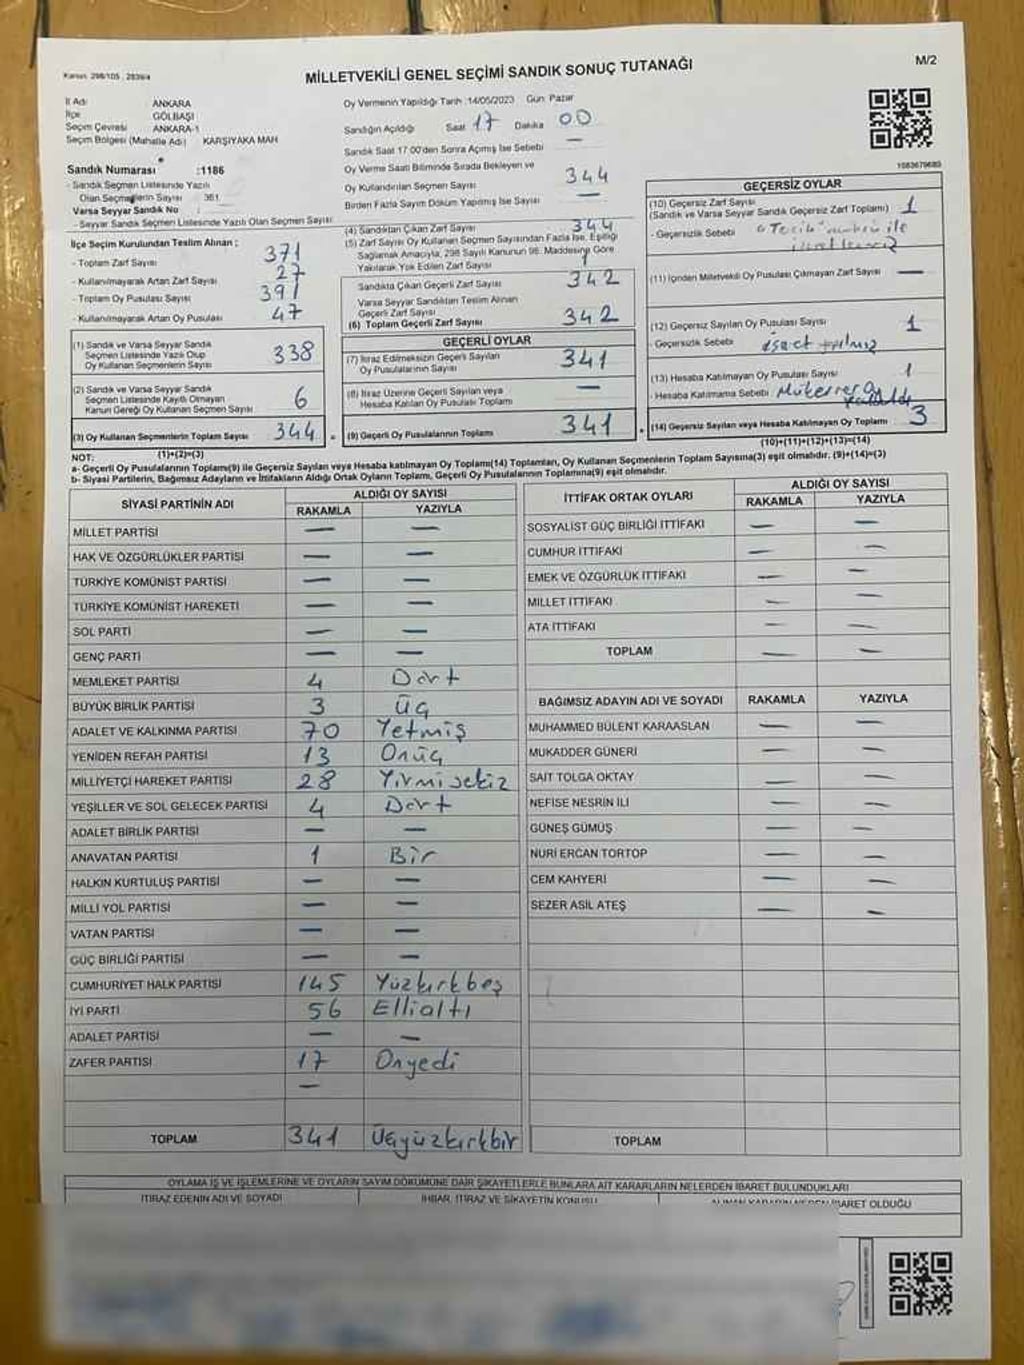 Kanun. 298/105 , 2839/4
MİLLETVEKİLİ GENEL SEÇİMİ SANDIK SONUÇ TUTANAĞI
M/2
İl Adı ANKARA
İlçe GÖLBAŞI
Seçim Çevresi ANKARA-1
Seçim Bölgesi (Mahalle Adı) KARŞIYAKA MAH
Sandık Numarası :1186
- Sandık Seçmen Listesinde Yazılı
Olan Seçmenlerin Sayısı : 361
Varsa Seyyar Sandık No :
- Seyyar Sandık Seçmen Listesinde Yazılı Olan Seçmen Sayısı
İlçe Seçim Kurulundan Teslim Alınan ;
- Toplam Zarf Sayısı 371
- Kullanılmayarak Artan Zarf Sayısı 27
- Toplam Oy Pusulası Sayısı 391
- Kullanılmayarak Artan Oy Pusulası 47
(1) Sandık ve Varsa Seyyar Sandık
Seçmen Listesinde Yazılı Olup
Oy Kullanan Seçmenlerin Sayısı 338
(2) Sandık ve Varsa Seyyar Sandık
Seçmen Listesinde Kayıtlı Olmayan
Kanun Gereği Oy Kullanan Seçmen Sayısı 6
(3) Oy Kullanan Seçmenlerin Toplam Sayısı 344 =
(1)+(2)=(3)
Oy Vermenin Yapıldığı Tarih :14/05/2023 Gün: Pazar
Sandığın Açıldığı Saat 17 Dakika 00
Sandık Saat 17:00'den Sonra Açılmış İse Sebebi —
Oy Verme Saati Bitiminde Sırada Bekleyen ve
Oy Kullandırılan Seçmen Sayısı 344
Birden Fazla Sayım Döküm Yapılmış İse Sayısı —
(4) Sandıktan Çıkan Zarf Sayısı 344
(5) Zarf Sayısı Oy Kullanan Seçmen Sayısından Fazla İse, Eşitliği
Sağlamak Amacıyla, 298 Sayılı Kanunun 98. Maddesine Göre
Yakılarak Yok Edilen Zarf Sayısı
Sandıkta Çıkan Geçerli Zarf Sayısı 342
Varsa Seyyar Sandıktan Teslim Alınan
Geçerli Zarf Sayısı
(6) Toplam Geçerli Zarf Sayısı 342
GEÇERLİ OYLAR
(7) İtiraz Edilmeksizin Geçerli Sayılan
Oy Pusulalarının Sayısı 341
(8) İtiraz Üzerine Geçerli Sayılan veya
Hesaba Katılan Oy Pusulası Toplamı —
(9) Geçerli Oy Pusulalarının Toplamı 341
1083679683
GEÇERSİZ OYLAR
(10) Geçersiz Zarf Sayısı
(Sandık ve Varsa Seyyar Sandık Geçersiz Zarf Toplamı) 1
- Geçersizlik Sebebi
(11) İçinden Milletvekili Oy Pusulası Çıkmayan Zarf Sayısı —
(12) Geçersiz Sayılan Oy Pusulası Sayısı 1
- Geçersizlik Sebebi
(13) Hesaba Katılmayan Oy Pusulası Sayısı 1
- Hesaba Katılmama Sebebi Mükerrer Oy
(14) Geçersiz Sayılan veya Hesaba Katılmayan Oy Toplamı 3
(10)+(11)+(12)+(13)=(14)
NOT:
a- Geçerli Oy Pusulalarının Toplamı(9) ile Geçersiz Sayılan veya Hesaba katılmayan Oy Toplamı(14) Toplamları, Oy Kullanan Seçmenlerin Toplam Sayısına(3) eşit olmalıdır. (9)+(14)=(3)
b- Siyasi Partilerin, Bağımsız Adayların ve İttifakların Aldığı Ortak Oyların Toplamı, Geçerli Oy Pusulalarının Toplamına(9) eşit olmalıdır.
SİYASİ PARTİNİN ADI ALDIĞI OY SAYISI
RAKAMLA YAZIYLA
MİLLET PARTİSİ — —
HAK VE ÖZGÜRLÜKLER PARTİSİ — —
TÜRKİYE KOMÜNİST PARTİSİ — —
TÜRKİYE KOMÜNİST HAREKETİ — —
SOL PARTİ — —
GENÇ PARTİ — —
MEMLEKET PARTİSİ 4 Dört
BÜYÜK BİRLİK PARTİSİ 3 Üç
ADALET VE KALKINMA PARTİSİ 70 Yetmiş
YENİDEN REFAH PARTİSİ 13 Onüç
MİLLİYETÇİ HAREKET PARTİSİ 28 Yirmisekiz
YEŞİLLER VE SOL GELECEK PARTİSİ 4 Dört
ADALET BİRLİK PARTİSİ — —
ANAVATAN PARTİSİ 1 Bir
HALKIN KURTULUŞ PARTİSİ — —
MİLLİ YOL PARTİSİ — —
VATAN PARTİSİ — —
GÜÇ BİRLİĞİ PARTİSİ — —
CUMHURİYET HALK PARTİSİ 145 Yüzkırkbeş
İYİ PARTİ 56 Ellialtı
ADALET PARTİSİ — —
ZAFER PARTİSİ 17 Onyedi
—
TOPLAM 341 Üçyüzkırkbir
İTTİFAK ORTAK OYLARI ALDIĞI OY SAYISI
RAKAMLA YAZIYLA
SOSYALİST GÜÇ BİRLİĞİ İTTİFAKI — —
CUMHUR İTTİFAKI — —
EMEK VE ÖZGÜRLÜK İTTİFAKI — —
MİLLET İTTİFAKI — —
ATA İTTİFAKI — —
TOPLAM — —
BAĞIMSIZ ADAYIN ADI VE SOYADI RAKAMLA YAZIYLA
MUHAMMED BÜLENT KARAASLAN — —
MUKADDER GÜNERİ — —
SAİT TOLGA OKTAY — —
NEFİSE NESRİN İLİ — —
GÜNEŞ GÜMÜŞ — —
NURİ ERCAN TORTOP — —
CEM KAHYERİ — —
SEZER ASİL ATEŞ — —
TOPLAM
OYLAMA İŞ VE İŞLEMLERİNE VE OYLARIN SAYIM DÖKÜMÜNE DAİR ŞİKAYETLERLE BUNLARA AİT KARARLARIN NELERDEN İBARET BULUNDUKLARI
İTİRAZ EDENİN ADI VE SOYADI İHBAR, İTİRAZ VE ŞİKAYETİN KONUSU ALINAN KARARIN NEDEN İBARET OLDUĞU